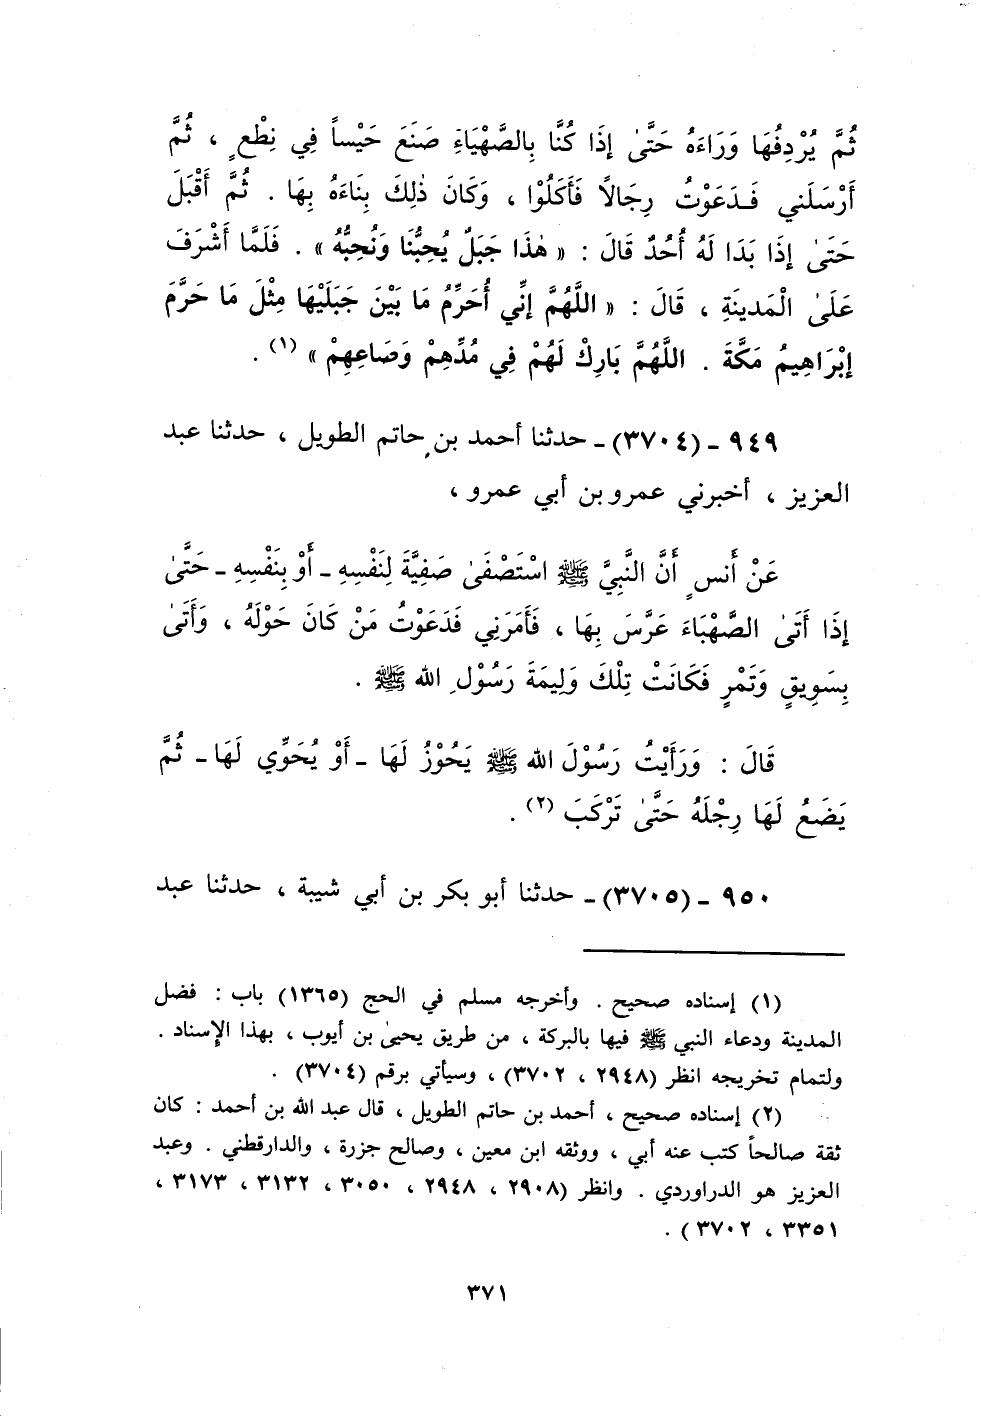 ثُمَّ يُرْدِفُهَا وَرَاءَهُ حَتَّىٰ إِذَا كُنَّا بِالصَّهْبَاءِ صَنَعَ حَيْساً فِي نِطْعٍ ، ثُمَّ
أَرْسَلَنِي فَدَعَوْتُ رِجَالًا فَأَكَلُوْا ، وَكَانَ ذٰلِكَ بِنَاءَهُ بِهَا . ثُمَّ أَقْبَلَ
حَتَىٰ إِذَا بَدَا لَهُ أُحُدٌ قَالَ : « هٰذَا جَبَلٌ يُحِبُّنَا وَنُحِبُّهُ » . فَلَمَّا أَشْرَفَ
عَلَىٰ الْمَدِينَةِ ، قَالَ : « اللَّهُمَّ إِنِّي أُحَرِّمُ مَا بَيْنَ جَبَلَيْهَا مِثْلَ مَا حَرَّمَ
إِبْرَاهِيمُ مَكَّةَ . اللَّهُمَّ بَارِكْ لَهُمْ فِي مُدِّهِمْ وَصَاعِهِمْ » (١) .
٩٤٩ ـ (٣٧٠٤) ـ حدثنا أحمد بن حاتم الطويل ، حدثنا عبد
العزيز ، أخبرني عمرو بن أبي عمرو ،
عَنْ أَنسٍ أَنَّ النَّبِيَّ ﷺ اسْتَصْفَىٰ صَفِيَّةَ لِنَفْسِهِ ـ أَوْ بِنَفْسِهِ ـ حَتَّىٰ
إِذَا أَتَىٰ الصَّهْبَاءَ عَرَّسَ بِهَا ، فَأَمَرَنِي فَدَعَوْتُ مَنْ كَانَ حَوْلَهُ ، وَأَتَىٰ
بِسَوِيقٍ وَتَمْرٍ فَكَانَتْ تِلْكَ وَلِيمَةَ رَسُوْلِ الله ﷺ .
قَالَ : وَرَأَيْتُ رَسُوْلَ الله ﷺ يَحُوْزُ لَهَا ـ أَوْ يُحَوِّي لَهَا ـ ثُمَّ
يَضَعُ لَهَا رِجْلَهُ حَتَّىٰ تَرْكَبَ (٢) .
٩٥٠ ـ (٣٧٠٥) ـ حدثنا أبو بكر بن أبي شيبة ، حدثنا عبد
(١) إسناده صحيح . وأخرجه مسلم في الحج (١٣٦٥) باب : فضل
المدينة ودعاء النبي ﷺ فيها بالبركة ، من طريق يحيىٰ بن أيوب ، بهذا الإِسناد .
ولتمام تخريجه انظر (٢٩٤٨ ، ٣٧٠٢) ، وسيأتي برقم (٣٧٠٤) .
(٢) إسناده صحيح ، أحمد بن حاتم الطويل ، قال عبد الله بن أحمد : كان
ثقة صالحاً كتب عنه أبي ، ووثقه ابن معين ، وصالح جزرة ، والدارقطني . وعبد
العزيز هو الدراوردي . وانظر (٢٩٠٨ ، ٢٩٤٨ ، ٣٠٥٠ ، ٣١٣٢ ، ٣١٧٣ ،
٣٣٥١ ، ٣٧٠٢) .
٣٧١